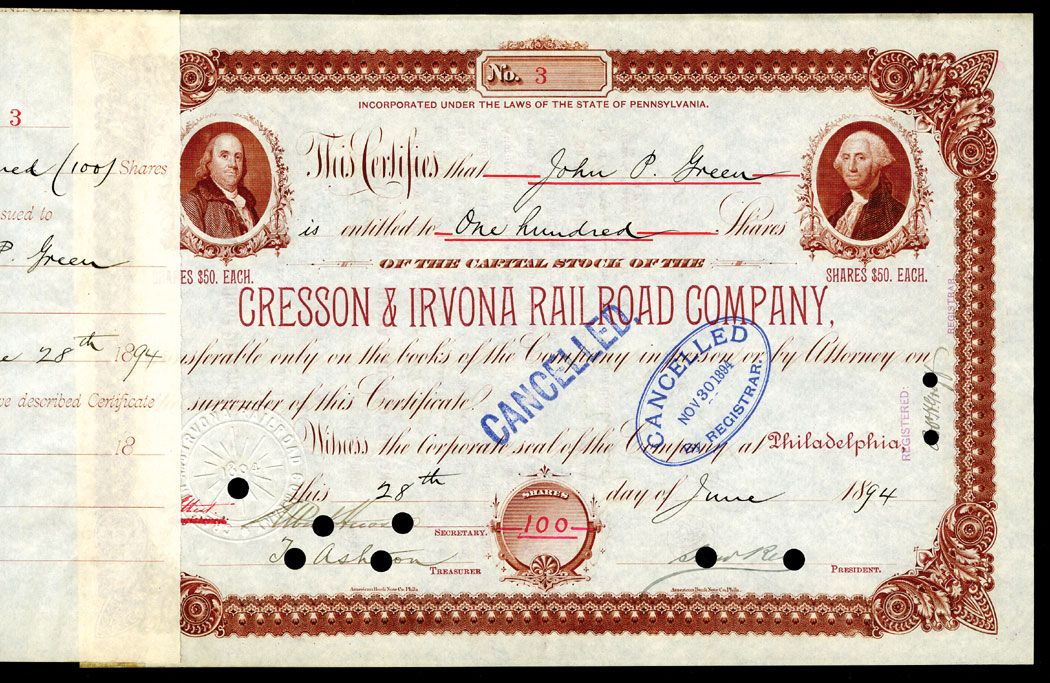 3
(100) Shares
issued to
P. Green
28th 1894
described Certificate
18
No. 3
INCORPORATED UNDER THE LAWS OF THE STATE OF PENNSYLVANIA.
This Certifies that John P. Green
is entitled to One hundred Shares
OF THE CAPITAL STOCK OF THE
ES $50. EACH.
SHARES $50. EACH.
CRESSON & IRVONA RAILROAD COMPANY,
nsferable only on the books of the Company in person or by Attorney on
surrender of this Certificate.
CANCELLED.
CANCELLED
NOV 30 1894
REGISTRAR.
Witness the corporate seal of the Company at Philadelphia,
this 28th day of June 1894
REGISTERED:
REGISTRAR
1894
SHARES
100
SECRETARY.
T. Ashton
TREASURER
PRESIDENT.
American Bank Note Co. Phila.
American Bank Note Co. Phila.